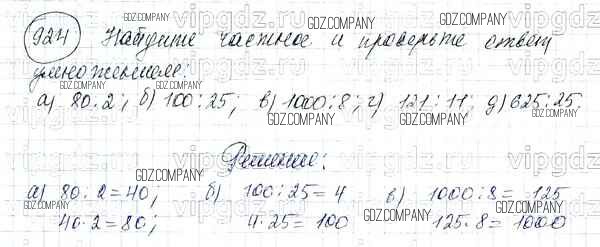 924 Найдите частное и проверьте ответ
умножением:
а) 80:2; б) 100:25; в) 1000:8; г) 121:11; д) 625:25.
Решение:
а) 80:2=40; б) 100:25=4 в) 1000:8=125
40·2=80; 4·25=100 125·8=1000
GDZ.COMPANY
vipgdz.com